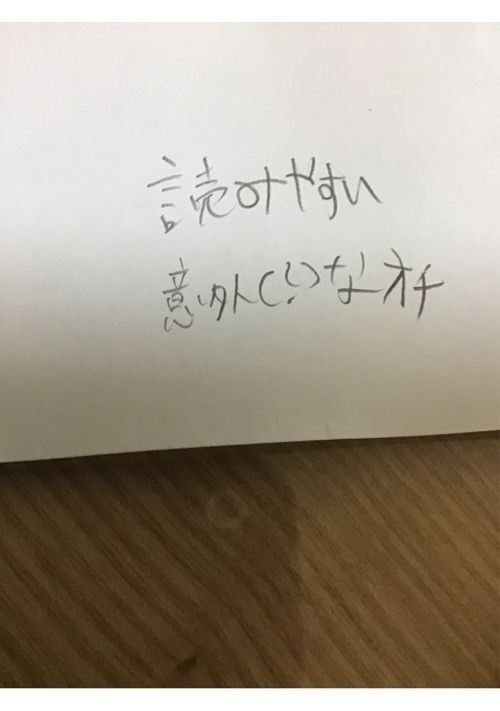 読みやすい
意外(?)なオチ